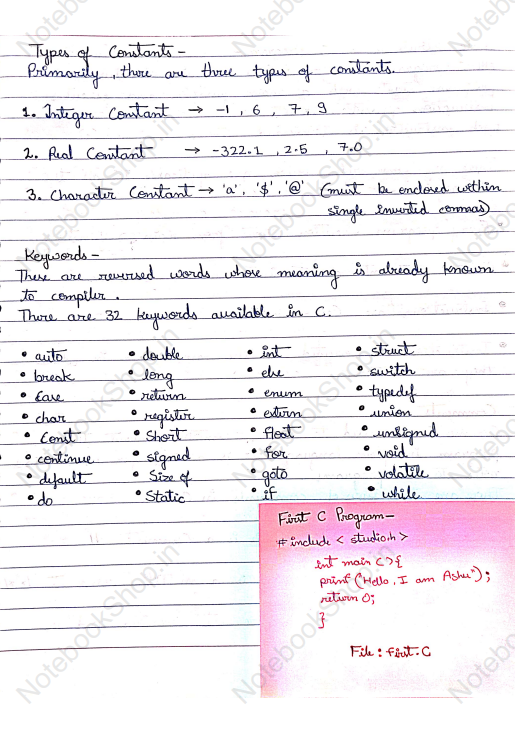 Types of Constants -
Primarily, there are three types of constants.
1. Integer Constant → -1, 6, 7, 9
2. Real Constant → -322.1, 2.5, 7.0
3. Character Constant → 'a', '$', '@' (must be enclosed within
single inverted commas)
Keywords -
These are reversed words whose meaning is already known
to compiler.
There are 32 keywords available in C.
• auto • double • int • struct
• break • long • else • switch
• Case • return • enum • typedef
• char • register • extern • union
• Const • Short • Float • unsigned
• continue • signed • For • void
• default • Size of • goto • volatile
• do • Static • if • while
First C Program -
# include < studio.h >
int main C>{
prinf ("Hello, I am Ashu");
return 0;
}
File : First.C
NotebookShop.in